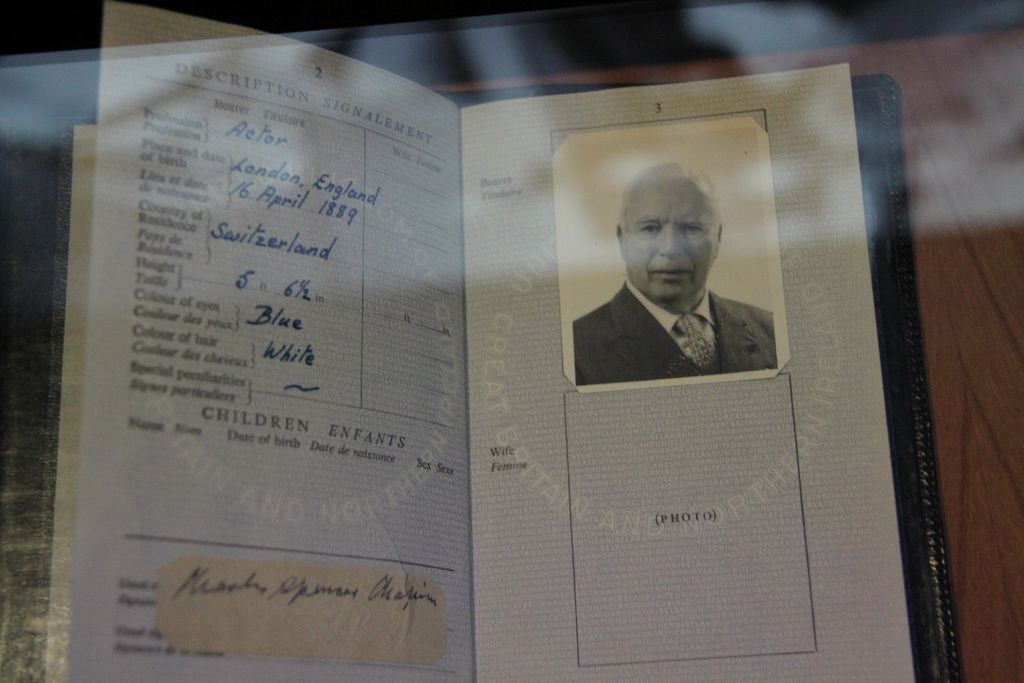 2
DESCRIPTION SIGNALEMENT
Bearer Titulaire
Wife Femme
Profession
Profession } Actor
Place and date
of birth } London, England
Lieu et date
de naissance } 16 April 1889
Country of
Residence
Pays de
Résidence } Switzerland
Height
Taille } 5 ft 6½ in
ft. in
Colour of eyes
Couleur des yeux } Blue
Colour of hair
Couleur des cheveux } White
Special peculiarities
Signes particuliers } ~
CHILDREN ENFANTS
Name Nom Date of birth Date de naissance Sex Sexe
Charles Spencer Chaplin
3
Bearer
Titulaire
Wife
Femme
(PHOTO)
GREAT BRITAIN AND NORTHERN IRELAND